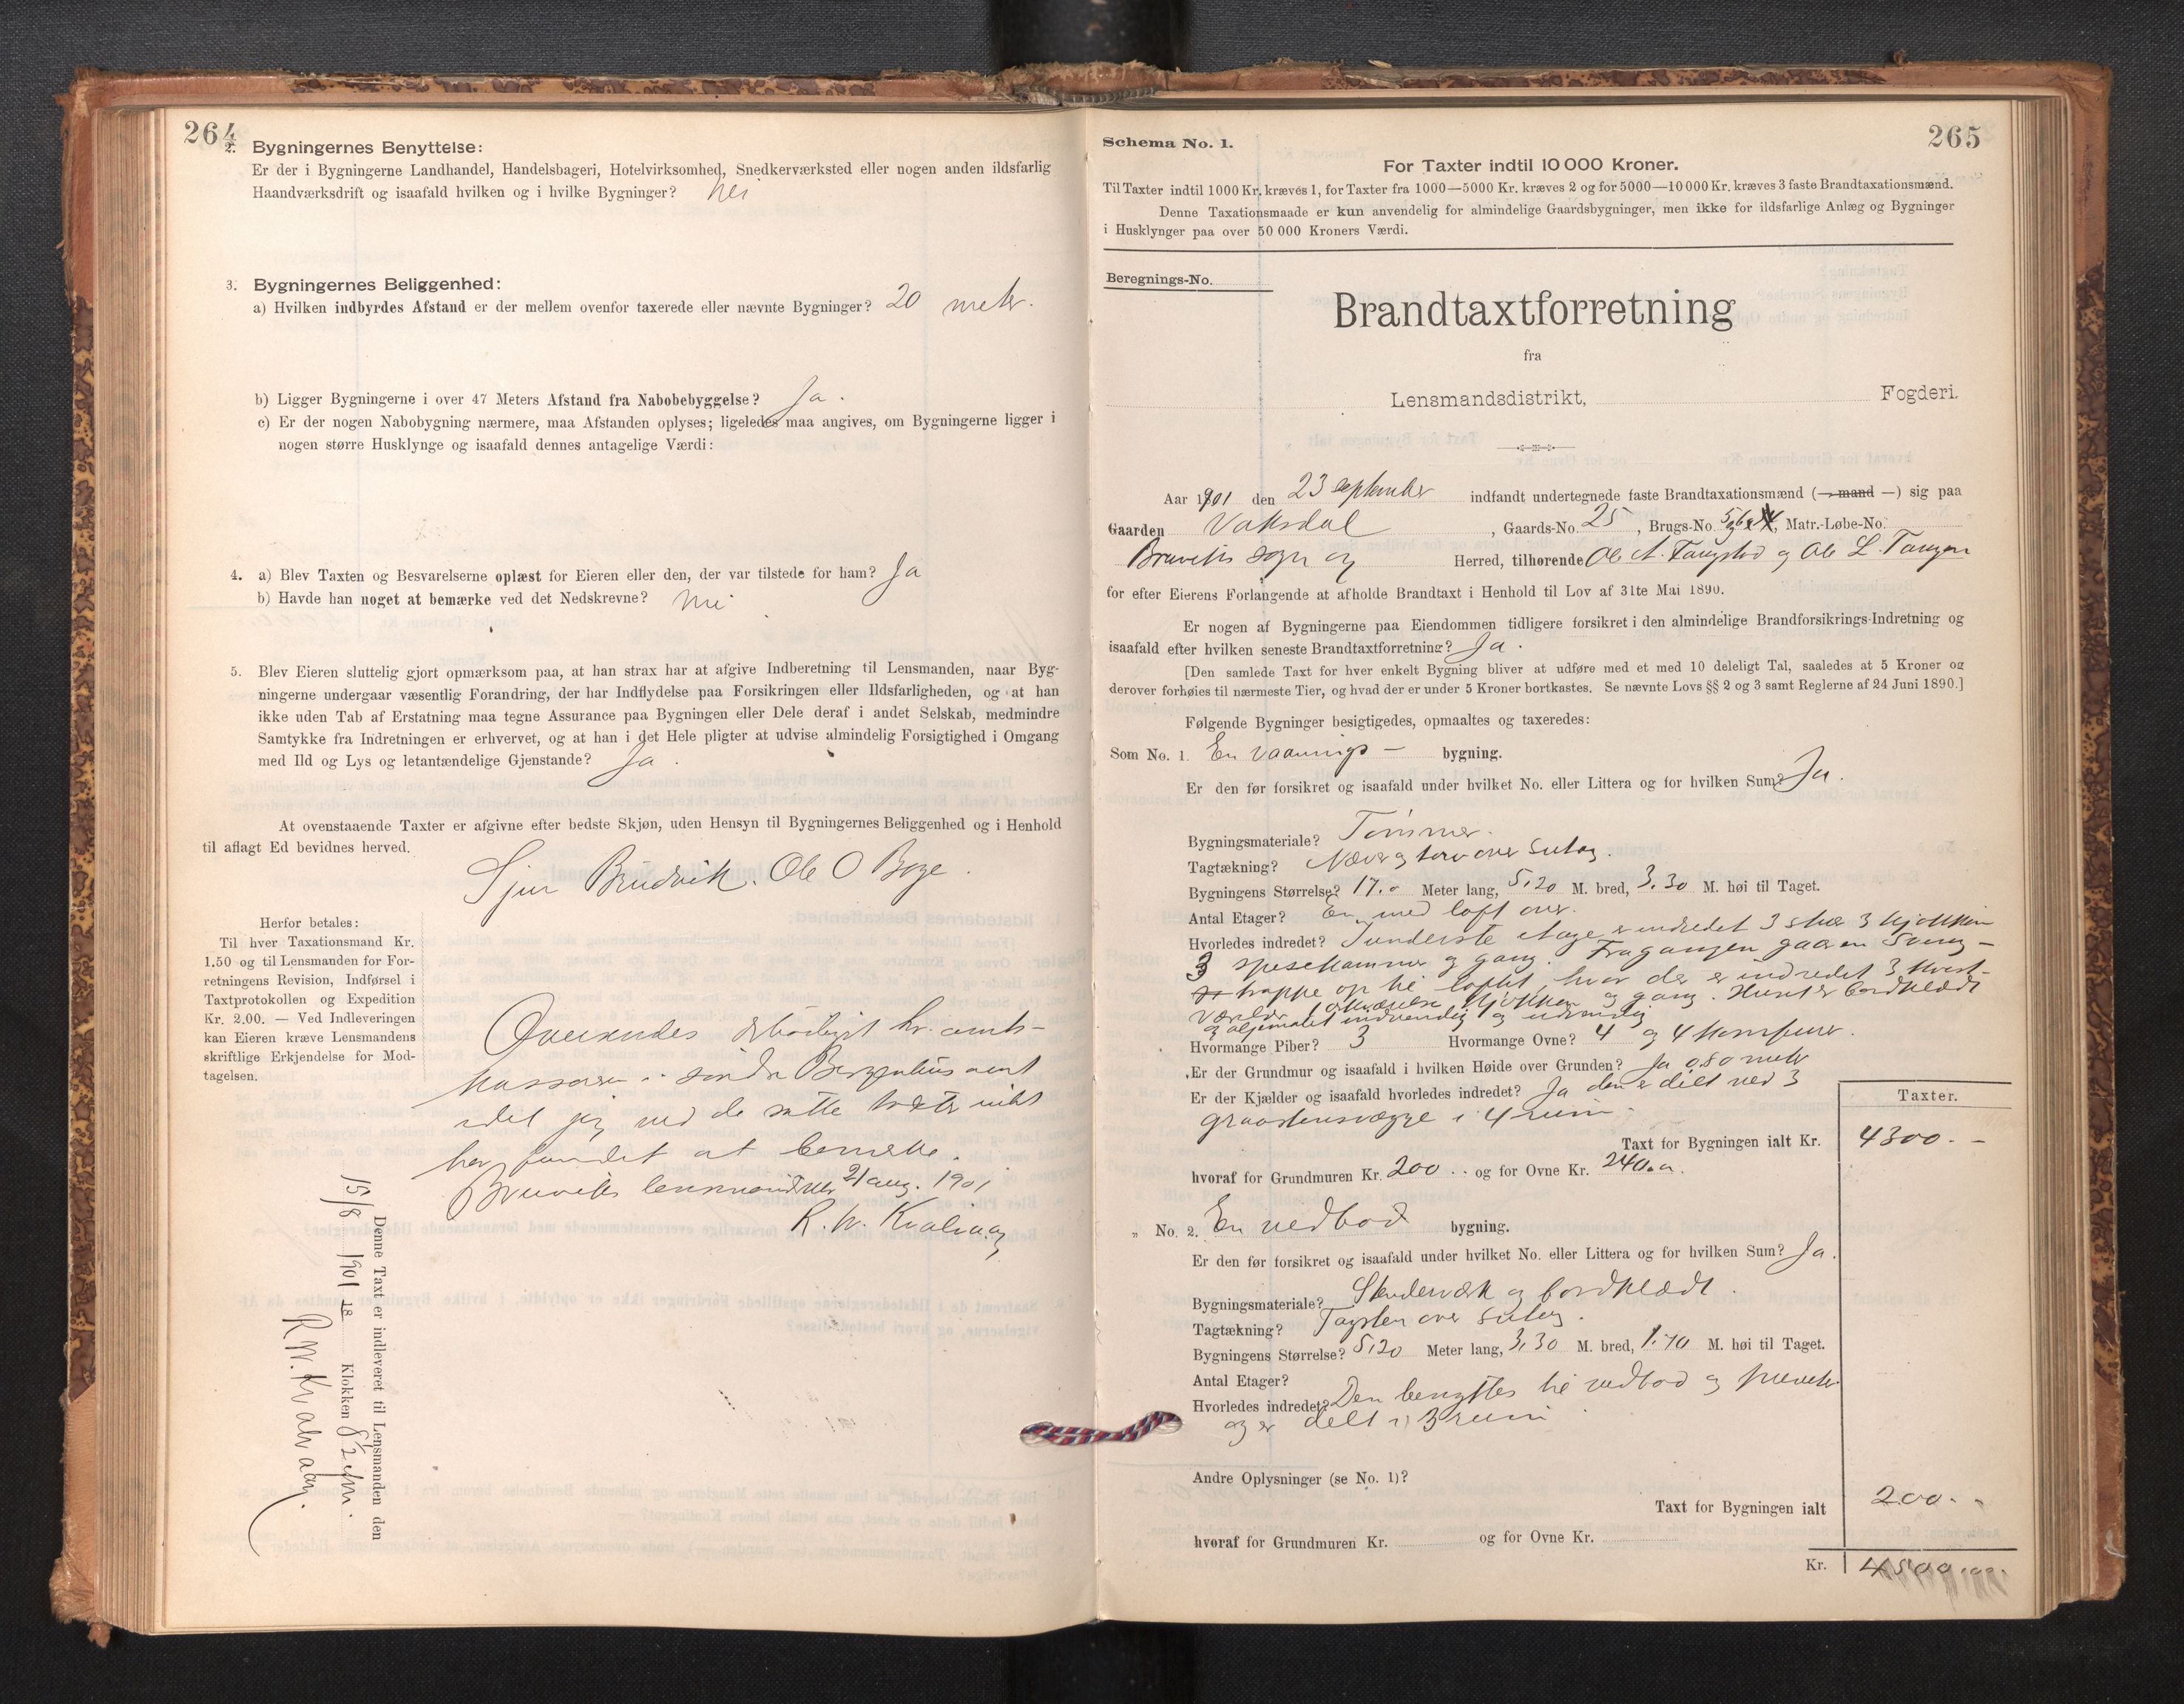 264
2. Bygningernes Benyttelse:
Er der i Bygningerne Landhandel, Handelsbageri, Hotelvirksomhed, Snedkerværksted eller nogen anden ildsfarlig
Haandværksdrift og isaafald hvilken og i hvilke Bygninger? Nei
3. Bygningernes Beliggenhed:
a) Hvilken indbyrdes Afstand er der mellem ovenfor taxerede eller nævnte Bygninger? 20 metr.
b) Ligger Bygningerne i over 47 Meters Afstand fra Nabobebyggelse? Ja.
c) Er der nogen Nabobygning nærmere, maa Afstanden oplyses; ligeledes maa angives, om Bygningerne ligger i
nogen større Husklynge og isaafald dennes antagelige Værdi:
4. a) Blev Taxten og Besvarelserne oplæst for Eieren eller den, der var tilstede for ham? Ja
b) Havde han noget at bemærke ved det Nedskrevne? Nei
5. Blev Eieren sluttelig gjort opmærksom paa, at han strax har at afgive Indberetning til Lensmanden, naar Byg-
ningerne undergaar væsentlig Forandring, der har Indflydelse paa Forsikringen eller Ildsfarligheden, og at han
ikke uden Tab af Erstatning maa tegne Assurance paa Bygningen eller Dele deraf i andet Selskab, medmindre
Samtykke fra Indretningen er erhvervet, og at han i det Hele pligter at udvise almindelig Forsigtighed i Omgang
med Ild og Lys og letantændelige Gjenstande? Ja.
At ovenstaaende Taxter er afgivne efter bedste Skjøn, uden Hensyn til Bygningernes Beliggenhed og i Henhold
til aflagt Ed bevidnes herved.
Sjur Brudvik. Ole O Boge.
Herfor betales:
Til hver Taxationsmand Kr.
1.50 og til Lensmanden for For-
retningens Revision, Indførsel i
Taxtprotokollen og Expedition
Kr. 2.00. — Ved Indleveringen
kan Eieren kræve Lensmandens
skriftlige Erkjendelse for Mod-
tagelsen.
Oversendes hr. amts-
kasserer i søndre Bergenhus amt
idet jeg ved de satte takster intet
har fundet at bemerke.
Bruviks 21 aug. 1901
R. W. Kvalvaag
Denne Taxt er indleveret til Lensmanden den
15/8 1901 18 Klokken 8½ efm.
R. W. Kvalvaag.
Schema No. 1.
265
For Taxter indtil 10 000 Kroner.
Til Taxter indtil 1000 Kr. kræves 1, for Taxter fra 1000—5000 Kr. kræves 2 og for 5000—10 000 Kr. kræves 3 faste Brandtaxationsmænd.
Denne Taxationsmaade er kun anvendelig for almindelige Gaardsbygninger, men ikke for ildsfarlige Anlæg og Bygninger
i Husklynger paa over 50 000 Kroners Værdi.
Beregnings-No.
Brandtaxtforretning
fra
Lensmandsdistrikt, Fogderi.
Aar 1901 den 23 september indfandt undertegnede faste Brandtaxationsmænd (— mand —) sig paa
Gaarden Vaksdal, Gaards-No. 25, Brugs-No. 5, Matr.-Løbe-No.
Bruviks sogn og Herred, tilhørende Ole A. Tangstad og Ole L. Tangen
for efter Eierens Forlangende at afholde Brandtaxt i Henhold til Lov af 31te Mai 1890.
Er nogen af Bygningerne paa Eiendommen tidligere forsikret i den almindelige Brandforsikrings-Indretning og
isaafald efter hvilken seneste Brandtaxtforretning? Ja.
[Den samlede Taxt for hver enkelt Bygning bliver at udføre med et med 10 deleligt Tal, saaledes at 5 Kroner og
derover forhøies til nærmeste Tier, og hvad der er under 5 Kroner bortkastes. Se nævnte Lovs §§ 2 og 3 samt Reglerne af 24 Juni 1890.]
Følgende Bygninger besigtigedes, opmaaltes og taxeredes:
Som No. 1. En vaanings — bygning.
Er den før forsikret og isaafald under hvilket No. eller Littera og for hvilken Sum? Ja.
Bygningsmateriale? Tømmer.
Tagtækning? Næver og torv over sutag.
Bygningens Størrelse? 17.0 Meter lang, 5.20 M. bred, 3.30 M. høi til Taget.
Antal Etager? En med loft over.
Hvorledes indredet? I underste etage er indredet 3 stuer 3 kjøkken
3 spisekammer og gang. Fra gangen gaar en sving-
trappe op til loftet, hvor der er indredet 3 kvist-
værelser, 1 kjøkken og gang. Huset er bordklædt
og oljemalet indvendig og udvendig
Hvormange Piber? 3 Hvormange Ovne? 4 og 4 komfurer.
Er der Grundmur og isaafald i hvilken Høide over Grunden? Ja 0.80 metr
Er der Kjælder og isaafald hvorledes indredet? Ja den er delt ved 3
graastensvægge i 4 rum.
Taxter.
Taxt for Bygningen ialt Kr. 4300.-
hvoraf for Grundmuren Kr. 200.. og for Ovne Kr. 240.
„ No. 2. En vedbod bygning.
Er den før forsikret og isaafald under hvilket No. eller Littera og for hvilken Sum? Ja.
Bygningsmateriale? Stenderverk og bordklædt.
Tagtækning? Tagsten over sutag.
Bygningens Størrelse? 5.20 Meter lang, 3.30 M. bred, 1.70 M. høi til Taget.
Antal Etager?
Hvorledes indredet? Den benyttes til vedbod og
og er delt i 3 rum
Andre Oplysninger (se No. 1)?
Taxt for Bygningen ialt 200.-
hvoraf for Grundmuren Kr. og for Ovne Kr.
Kr. 4500.00.